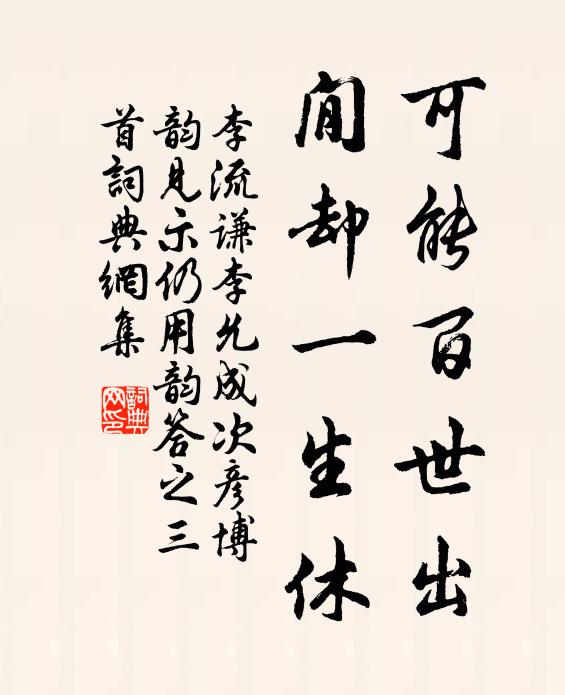 可能百世出
閒却一生休
李流谦李允成次彦博
韵见示仍用韵答之三
首词典網集
詞典
网印